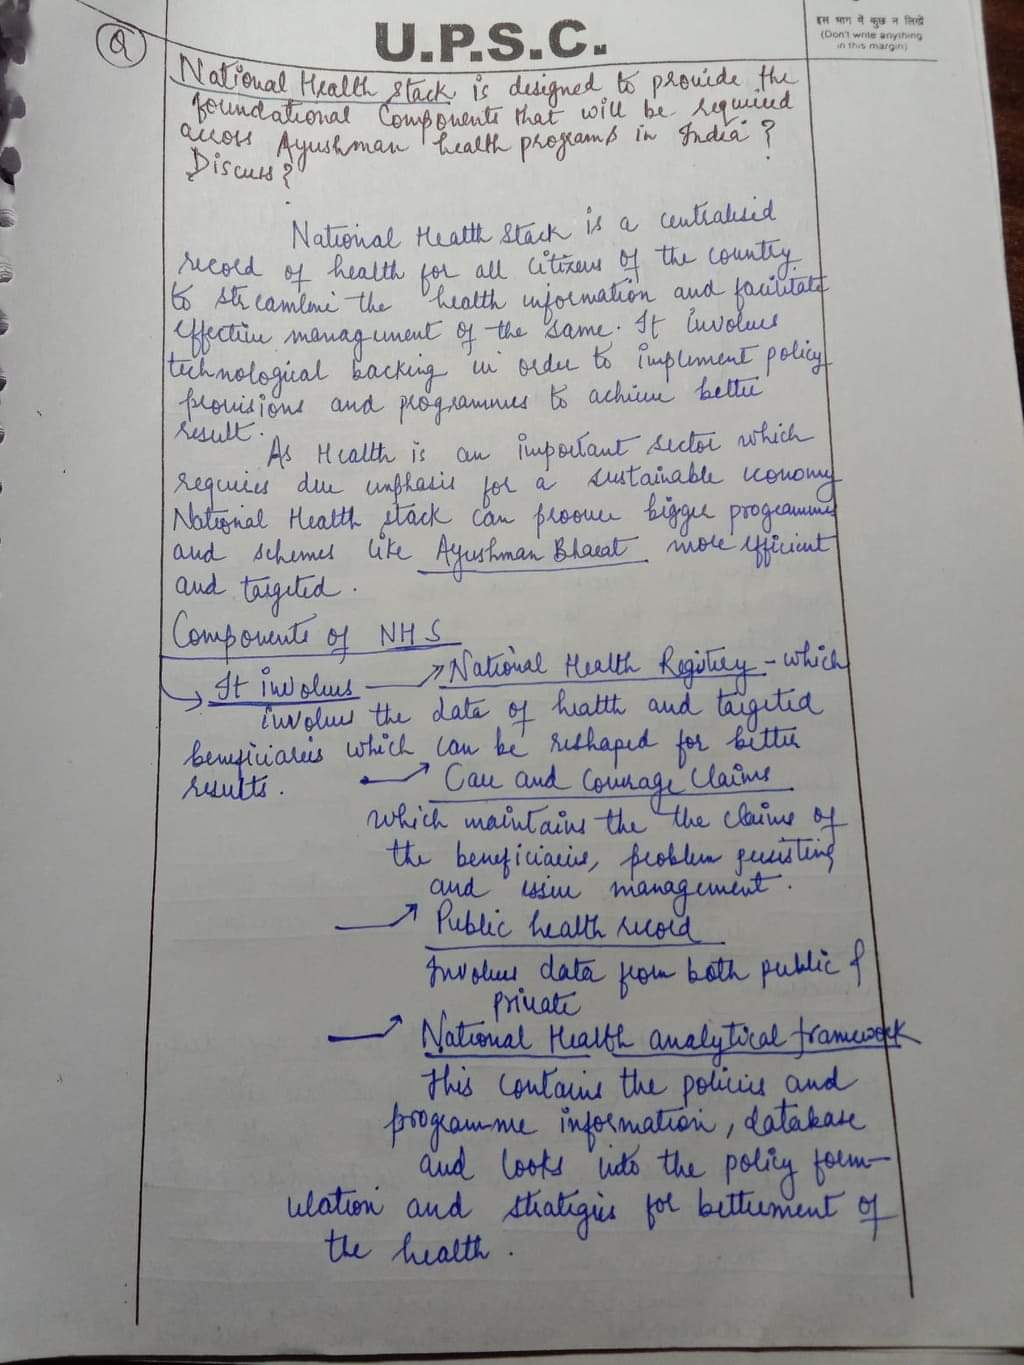 U.P.S.C.
इस भाग में कुछ न लिखें
(Don't write anything
in this margin)
Q
National Health Stack is designed to provide the
foundational Components that will be required
across Ayushman health programs in India?
Discuss?
National Health Stack is a centralised
record of health for all citizens of the country
to streamline the health information and facilitate
effective management of the same. It involves
technological backing in order to implement policy
provisions and programmes to achieve better
result.
As Health is an important sector which
requires due emphasis for a sustainable economy
National Health stack can proove bigger programmes
and schemes like Ayushman Bharat more efficient
and targeted.
Components of NHS
It involves → National Health Registry - which
involves the data of health and targeted
beneficiaries which can be reshaped for better
results.
→ Care and Courage Claims
which maintains the the claims of
the beneficiaries, problem persisting
and issue management.
→ Public health record
Involves data from both public &
private
→ National Health analytical framework
This contains the policies and
programme information, database
and looks into the policy form-
ulation and strategies for betterment of
the health.